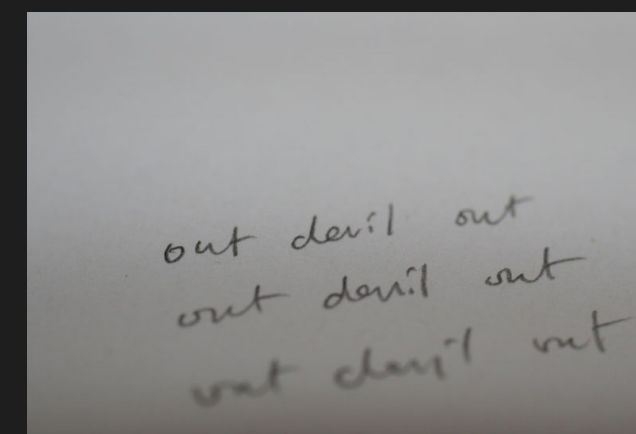 out devil out
out devil out
out devil out